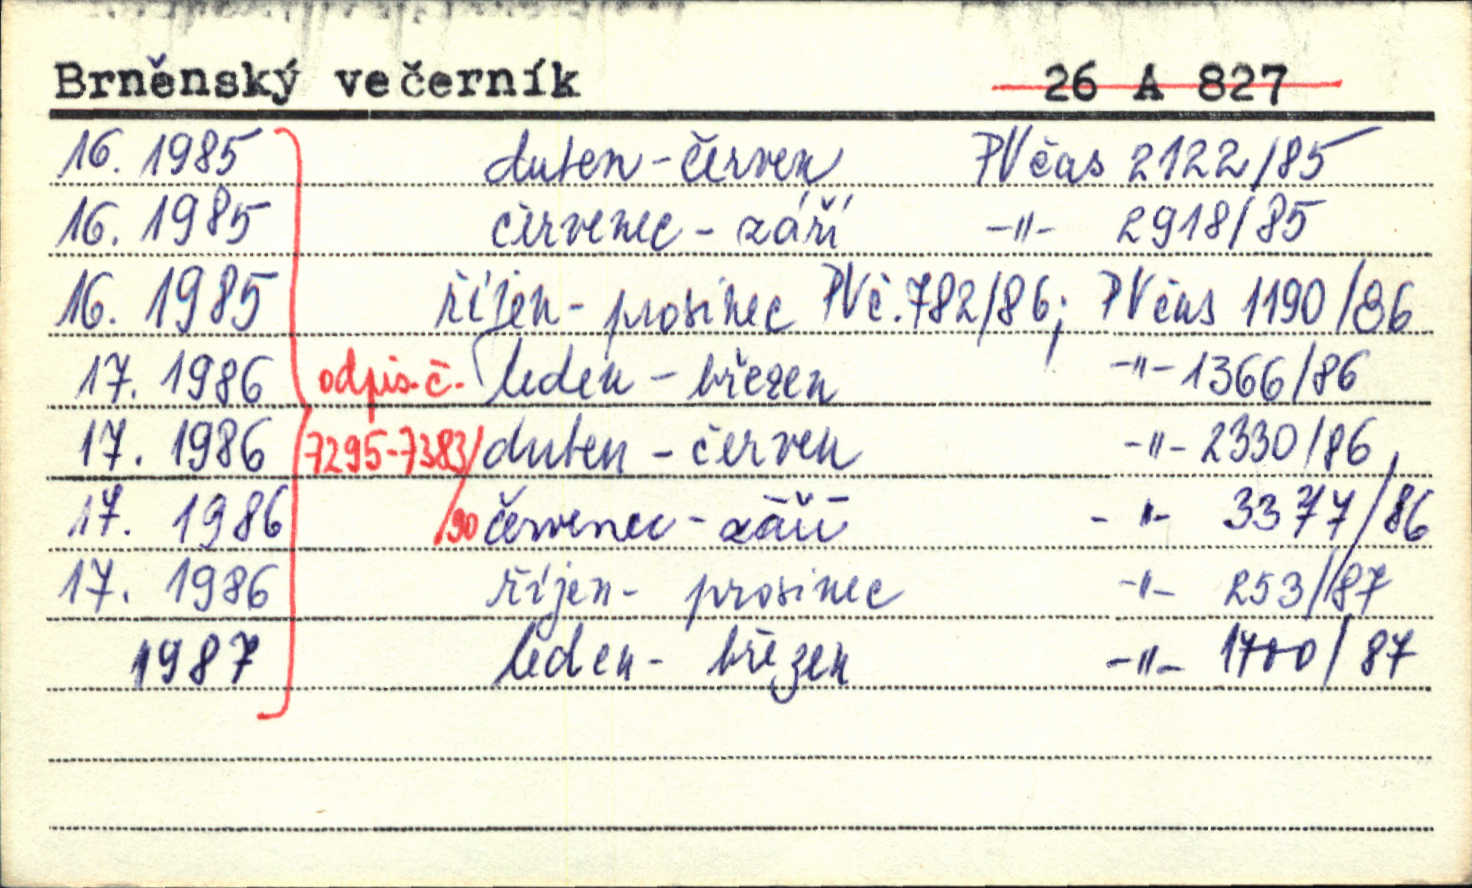 Brněnský večerník 26 A 827
16. 1985 duben - červen PV čas 2122/85
16. 1985 červenec - září -"- 2918/85
16. 1985 říjen - prosinec PVč. 782/86; PV čas 1190/86
17. 1986 odpis. č. leden - březen -"- 1366/86
17. 1986 7295-7383/ duben - červen -"- 2330/86,
17. 1986 /90 červenec - září -"- 3377/86
17. 1986 říjen - prosinec -"- 253/87
1987 leden - březen -"- 1700/87